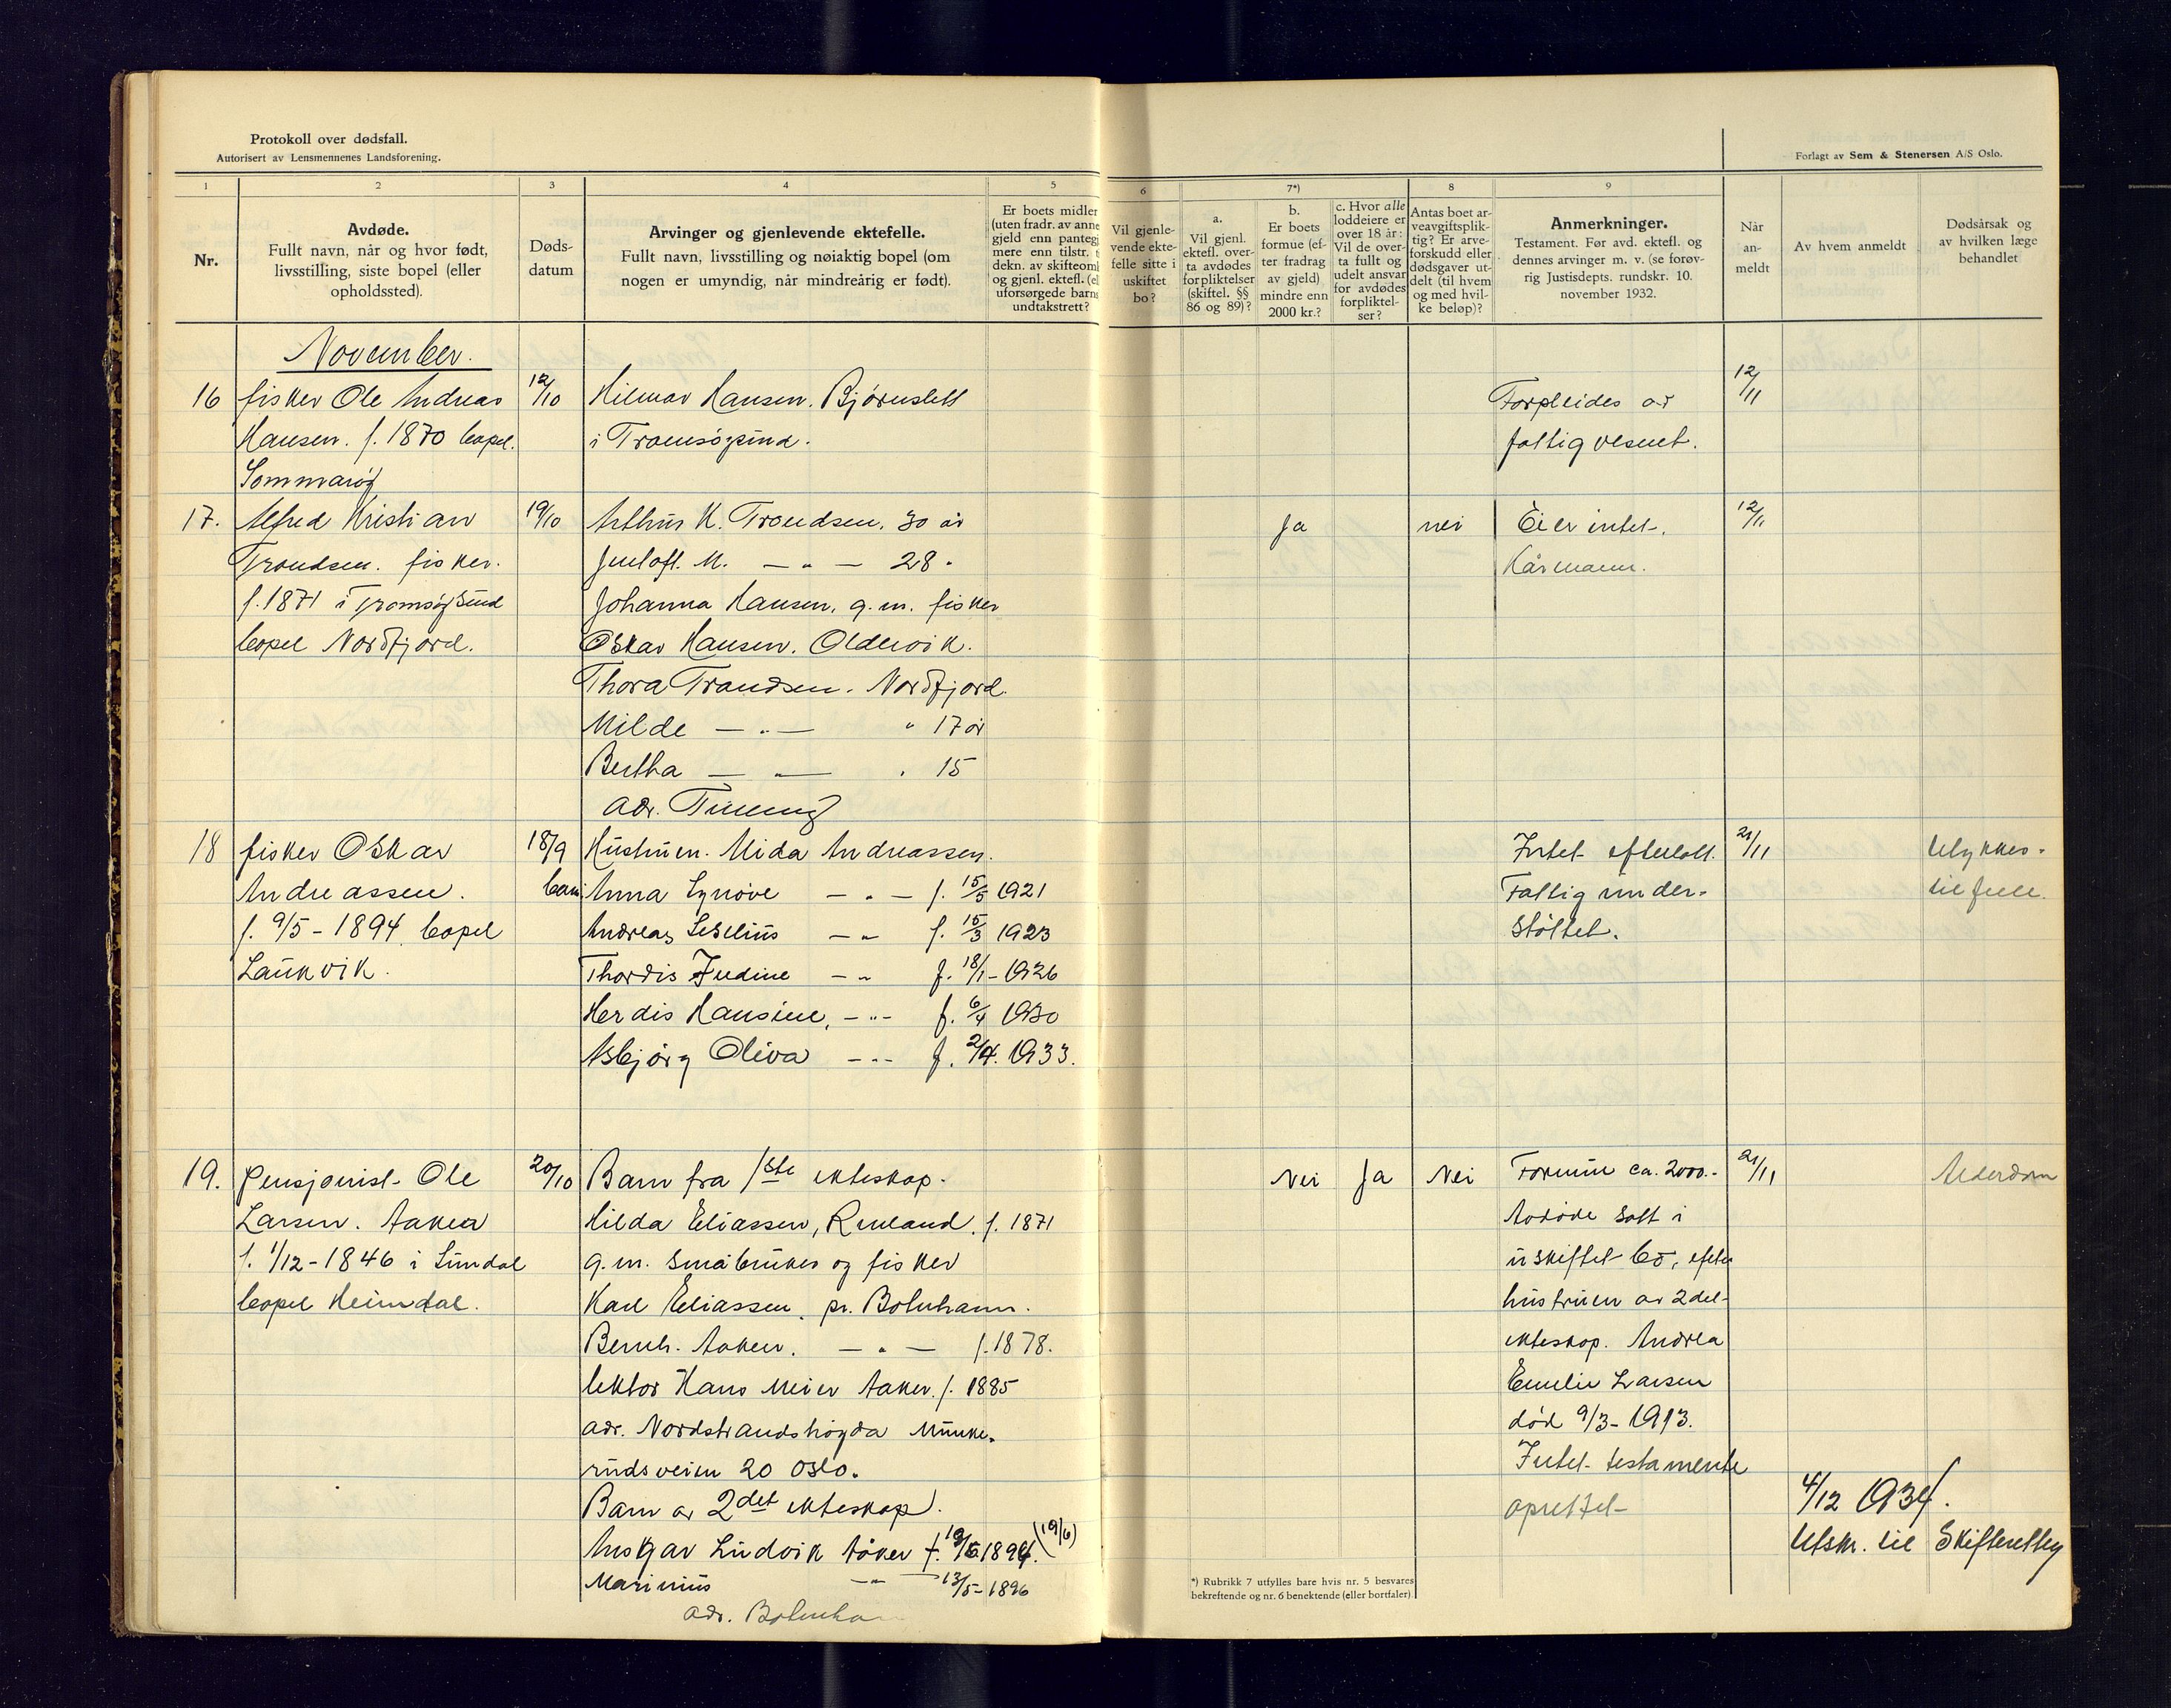 Protokoll over dødsfall.
Autorisert av Lensmennenes Landsforening.
Forlagt av Sem & Stenersen A/S Oslo.
1 2 3 4 5 6 7*) 8 9
Nr.
Avdøde.
Fullt navn, når og hvor født,
livsstilling, siste bopel (eller
opholdssted).
Døds-
datum
Arvinger og gjenlevende ektefelle.
Fullt navn, livsstilling og nøiaktig bopel (om
nogen er umyndig, når mindreårig er født).
Er boets midler
(uten fradr. av anne
gjeld enn panteg
mere enn tilstr. t
dekn. av skifteoml
og gjenl. ektefl. (el
uforsørgede barns
undtakstrett?
Vil gjenle-
vende ekte-
felle sitte i
uskiftet
bo?
a.
Vil gjenl.
ektefl. over-
ta avdødes
forpliktelser
(skiftel. §§
86 og 89)?
b.
Er boets
formue (ef-
ter fradrag
av gjeld)
mindre enn
2000 kr.?
c. Hvor alle
loddeiere er
over 18 år:
Vil de over-
ta fullt og
udelt ansvar
for avdødes
forpliktel-
ser?
Antas boet ar-
veavgiftsplik-
tig? Er arve-
forskudd eller
dødsgaver ut-
delt (til hvem
og med hvil-
ke beløp)?
Anmerkninger.
Testament. Før avd. ektefl. og
dennes arvinger m. v. (se forøv-
rig Justisdepts. rundskr. 10.
november 1932.
Når
an-
meldt
Av hvem anmeldt
Dødsårsak og
av hvilken læge
behandlet
November.
16 fisker Ole Andreas 12/10 Hilmar Hansen. Bjørnslett Forpleides av 12/11
Hansen. f. 1870 bopel. i Tromsøysund. fattigvesnet.
Sommarøy
17. Alfred Kristian 19/10 Arthur K. Trondsen. 30 år Ja nei Eier intet. 12/11
Trondsen. fisker. M. — " — 28 " Kårmann.
f. 1871 i Tromsøysund Johanna Hansen, g.m. fisker
bopel Nordfjord. Oskar Hansen. Oldervik.
Thora Trondsen. Nordfjord.
Hilde — " — " 17 år
Bertha — " — " 15
adr.
18 fisker Oskar 18/9 Hustruen. Mida Andreassen. Intet efterlatt. 21/11 Ulykkes-
Andreassen. barn: Anna Synøve — " — f. 15/5 1921 Fattig under- tilfelle.
f. 9/5 - 1894 bopel Andreas Leselius — " f. 15/3 1923 støttet.
Laukvik. Thordis Judine — " f. 18/1 - 1926
Herdis Hansine, — " — f. 6/4 1930
Asbjørg Oliva — " — f. 2/4. 1933.
19. Pensjonist Ole 20/10 Barn fra 1ste ekteskap. Nei Ja Nei Formue ca. 2000.- 21/11 Alderdom
Larsen. Aaker Hilda Eliassen, Renland. f. 1871 Avdøde satt i
f. 1/12 - 1846 i Sundal g.m. småbruker og fisker uskiftet bo, efter
bopel Heimdal. Karl Eliassen, pr. Botnhamn. hustruen av 2det
Bernh. Aaker. — " — f. 1878. ekteskap. Andrea
lektor Hans Meier Aaker. f. 1885 Emelie Larsen
adr. Nordstrandshøgda Munke- død 9/3 - 1913.
rudsveien 20 Oslo. Intet testamente
Barn av 2det ekteskap. oprettet 4/12 1934.
Ansgar Ludvik Aaker f. 1894. (19/6) Utskr. til Skifteretten
Marinius — " — 13/5 - 1896
adr. Botnhamn
*) Rubrikk 7 utfylles bare hvis nr. 5 besvares
bekreftende og nr. 6 benektende (eller bortfaler)